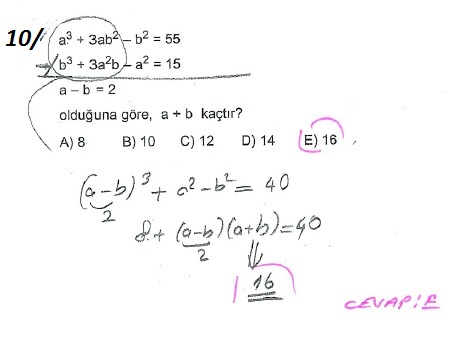 10/ a³ + 3ab² – b² = 55
b³ + 3a²b – a² = 15
a – b = 2
olduğuna göre, a + b kaçtır?
A) 8 B) 10 C) 12 D) 14 E) 16
(a-b)³ + a² - b² = 40
2
8 + (a-b)(a+b) = 40
2
16
CEVAP: E